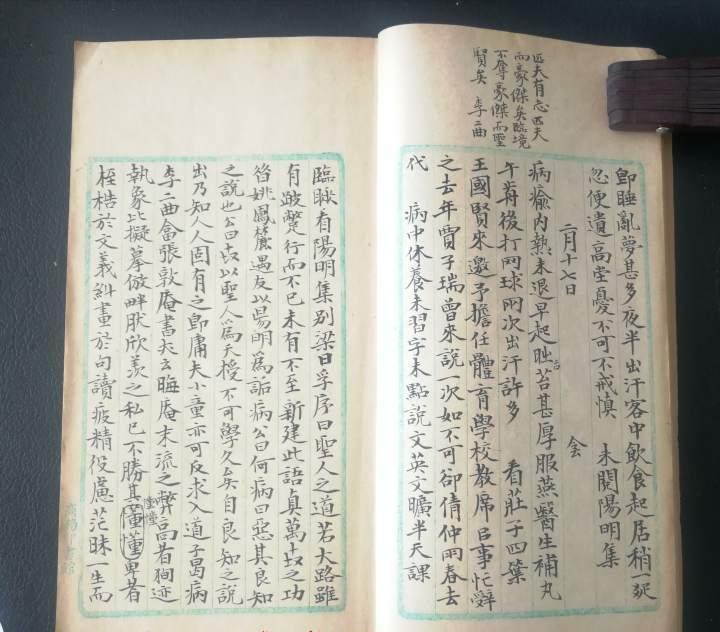 匹夫有志匹夫
而豪傑矣臨境
不奪豪傑而聖
賢矣 李二曲
卽睡亂夢甚多夜半出汗客中飲食起居稍一疑
忽便遺高堂憂不可不戒慎 未閱陽明集
二月十七日 会
病癒内熱未退早起舌苔甚厚服燕醫生補丸
午前後打网球兩次出汗許多 看莊子四葉
王國賢來邀予擔任體育學校教席以事忙辭
之去年賈子瑞曾來說一次如不可卻倩仲雨春去
代 病中休養未習字未點說文英文曠半天課
臨睡看陽明集别梁日孚序曰聖人之道若大路雖
有跛蹩行而不已未有不至 新建此語真萬古之功
 姚鳳麓遇友以陽明為詬病公曰何病曰惡其良知
之說也公曰古以聖人爲天授不可學久矣自良知之說
出乃知人人固有之卽庸夫小童亦可反求入道子曷病
李二曲答張敦庵書夫云晦庵末流之弊高者徇迹
執象比擬摹倣畔肰欣羡之私已不勝其憧憧卑者
憧憧
桎梏於文義糾畫於句讀疲精役慮茫昧一生而